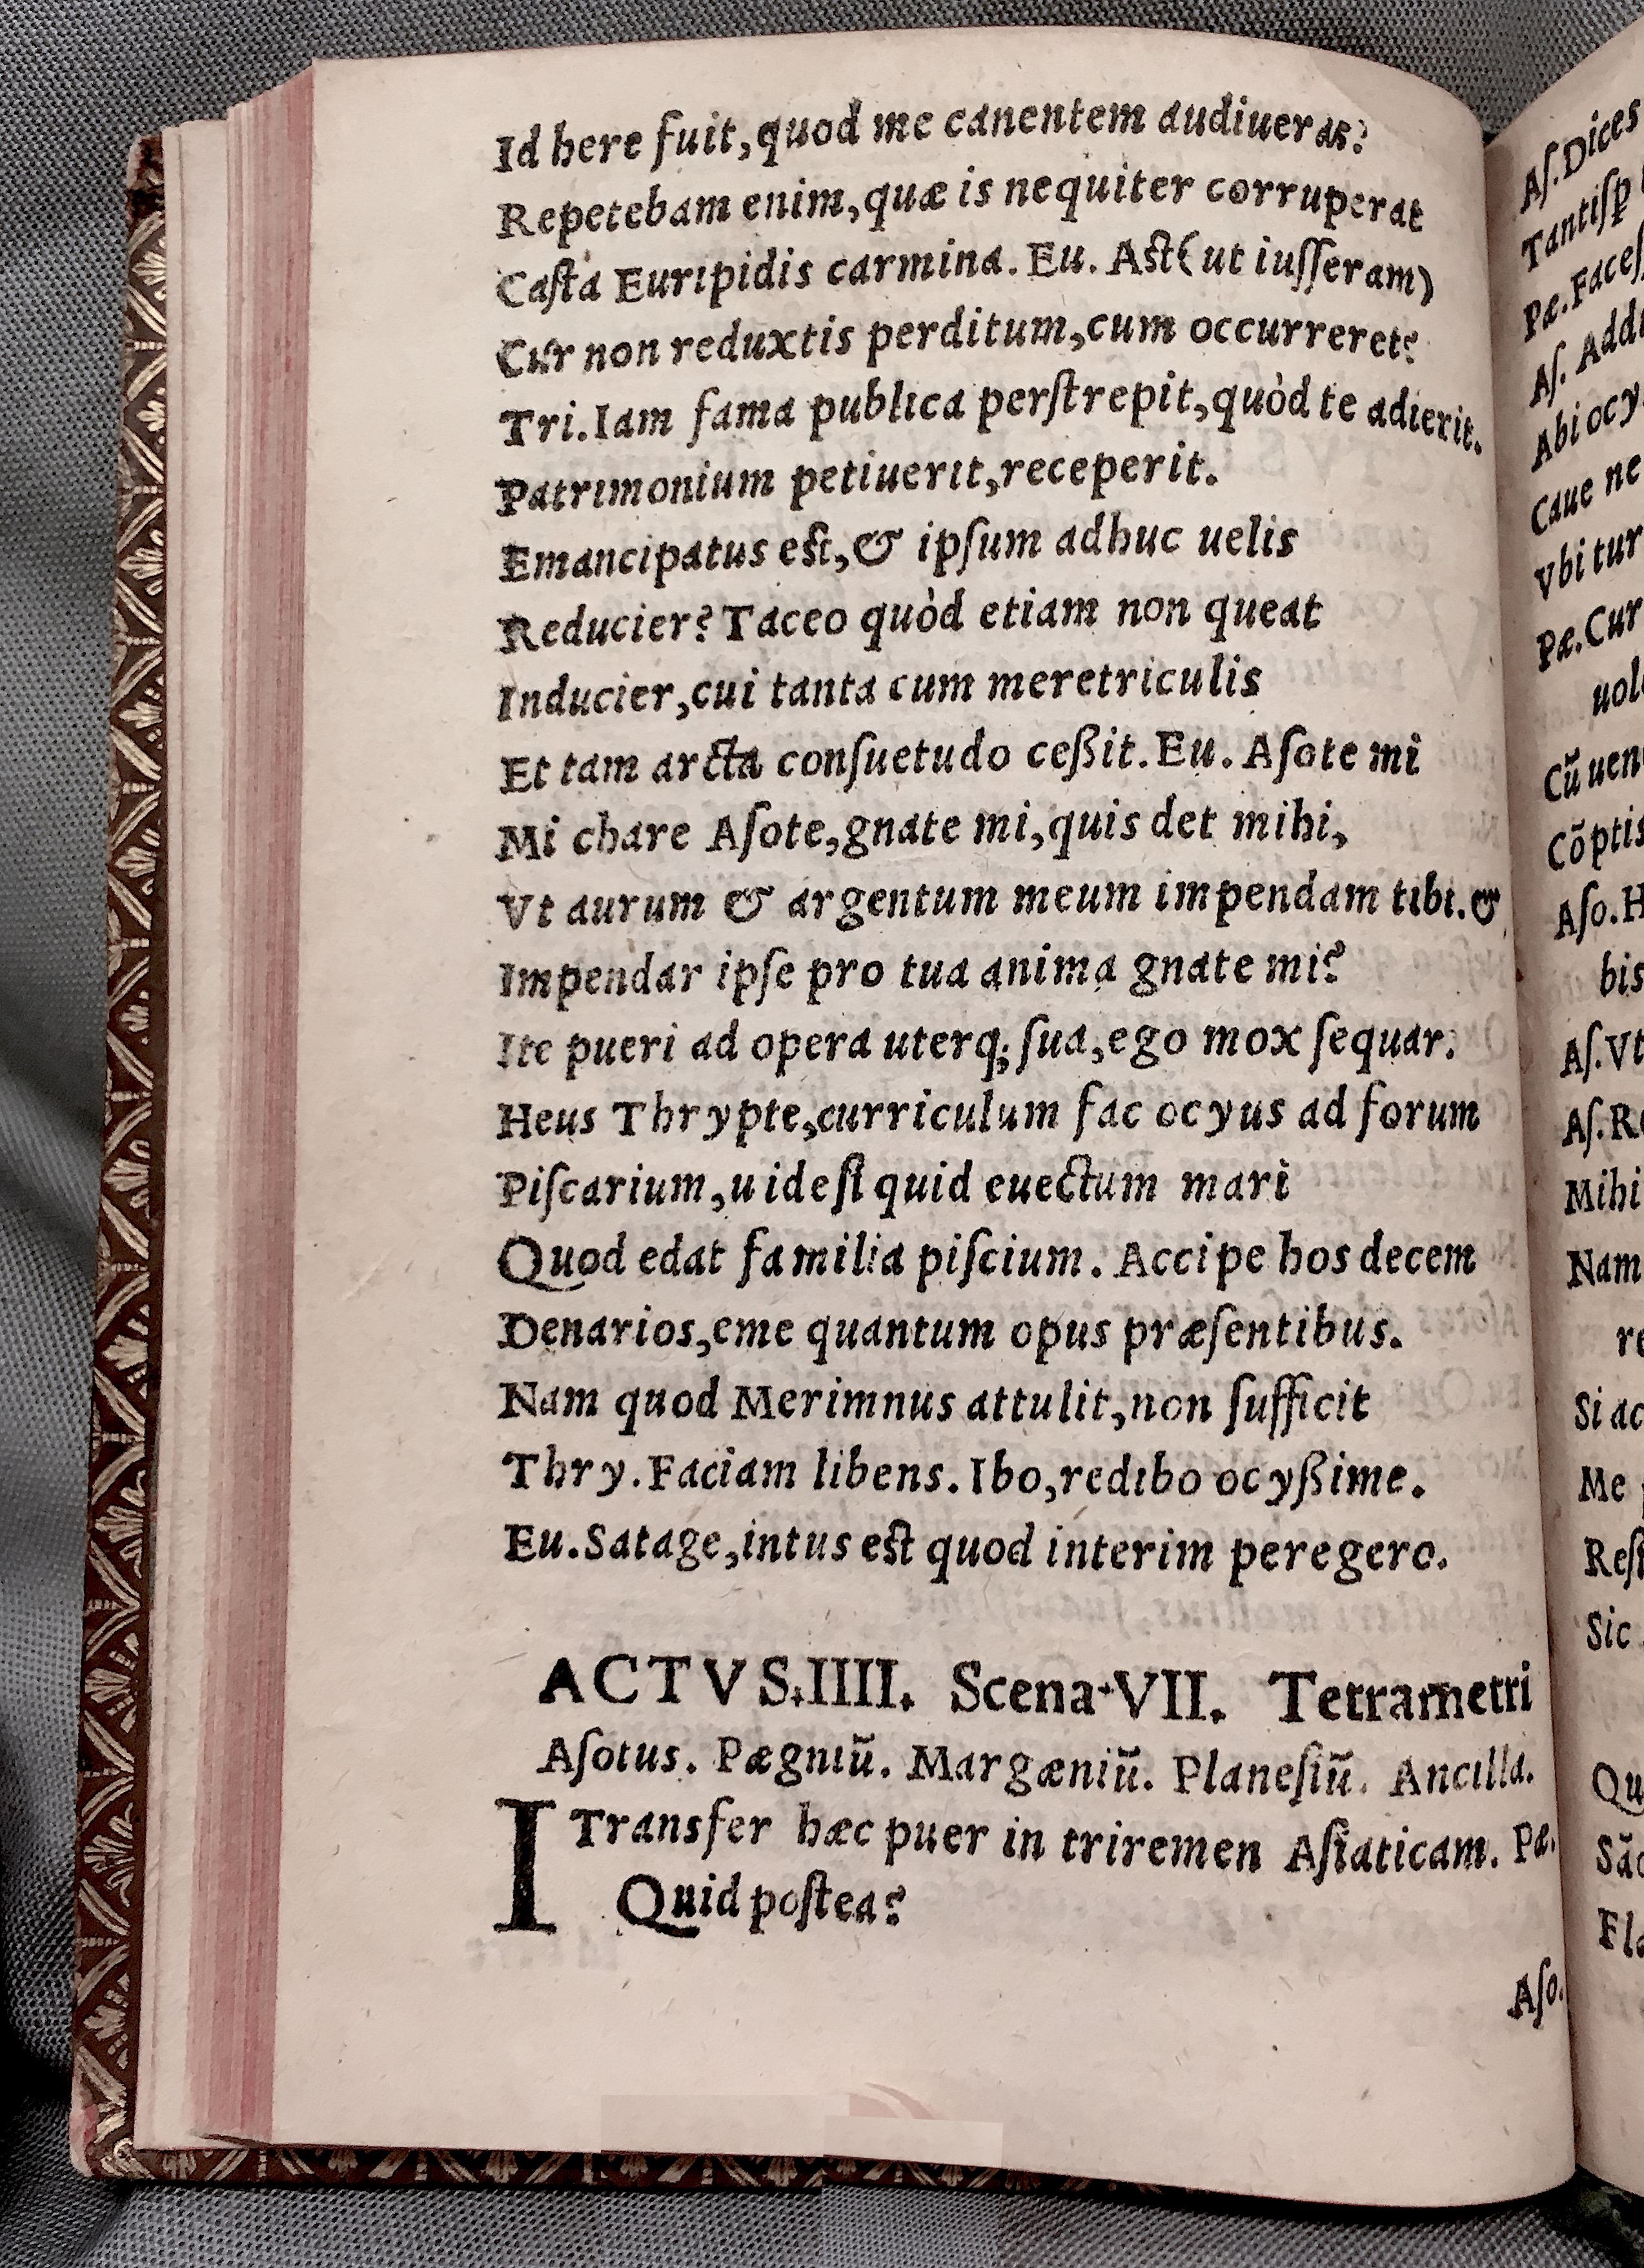 Id here fuit, quod me canentem audiueras?
Repetebam enim, quæ is nequiter corruperat
Caſta Euripidis carmina. Eu. Aſt (ut iuſſeram)
Cur non reduxtis perditum, cum occurreret?
Tri. Iam fama publica perſtrepit, quòd te adierit.
Patrimonium petiuerit, receperit.
Emancipatus eſt, & ipſum adhuc uelis
Reducier? Taceo quòd etiam non queat
Inducier, cui tanta cum meretriculis
Et tam arcta conſuetudo ceßit. Eu. Aſote mi
Mi chare Aſote, gnate mi, quis det mihi,
Vt aurum & argentum meum impendam tibi. &
Impendar ipſe pro tua anima gnate mi?
Ite pueri ad opera uterq; ſua, ego mox ſequar.
Heus Thrypte, curriculum fac ocyus ad forum
Piſcarium, uide ſi quid euectum mari
Quod edat familia piſcium. Accipe hos decem
Denarios, eme quantum opus præſentibus.
Nam quod Merimnus attulit, non ſufficit
Thry. Faciam libens. Ibo, redibo ocyßime.
Eu. Satage, intus eſt quod interim peregero.
ACTVS. IIII. Scena VII. Tetrametri
Aſotus. Pægniū. Margæniū. Planeſiū. Ancilla.
I Transfer hæc puer in triremen Aſiaticam. Pæ.
Quid poſtea?
Aſo.
Aſ. Dices
Tantiſp
Pæ. Faceſ
Aſ. Add
Abi ocy
Caue ne
Vbi tur
Pæ. Cur
uol
Cū uen
Cōptis
Aſo. H
bis
Aſ. Vt
Aſ. R
Mihi
Nam
re
Si ac
Me
Reſ
Sic
Qu
Fl